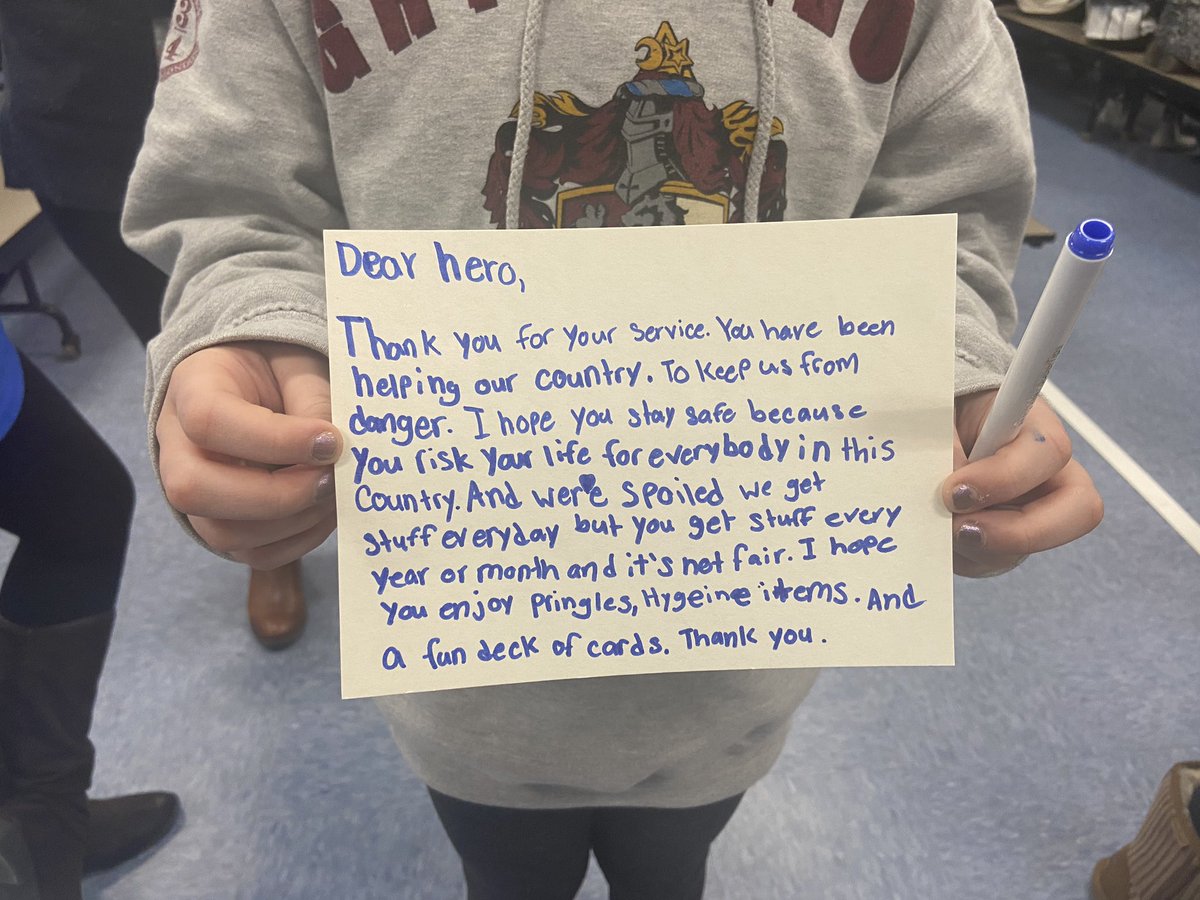 Dear hero,
Thank you for your service. You have been
helping our country. To keep us from
danger. I hope you stay safe because
you risk your life for everybody in this
Country. And we're spoiled we get
stuff everyday but you get stuff every
year or month and it's not fair. I hope
you enjoy Pringles, Hygeine items. And
a fun deck of cards. Thank you.